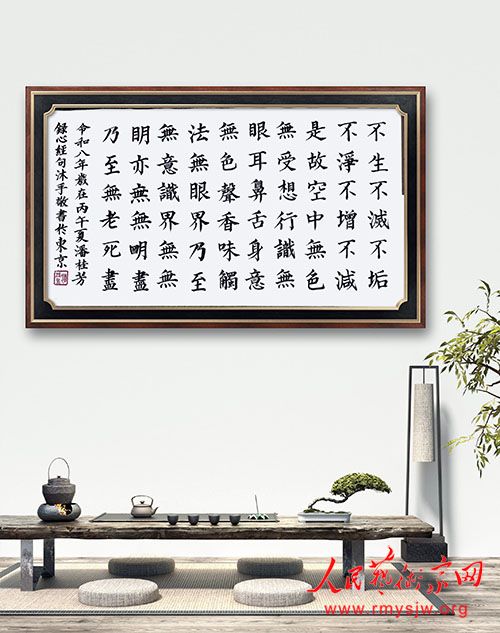 不生不滅不垢
不淨不增不減
是故空中無色
無受想行識無
眼耳鼻舌身意
無色聲香味觸
法無眼界乃至
無意識界無無
明亦無無明盡
乃至無老死盡
令和八年歲在丙午夏潘桂芳
錄心經句沐手敬書於東京
人民藝術家网
www.rmysjw.org